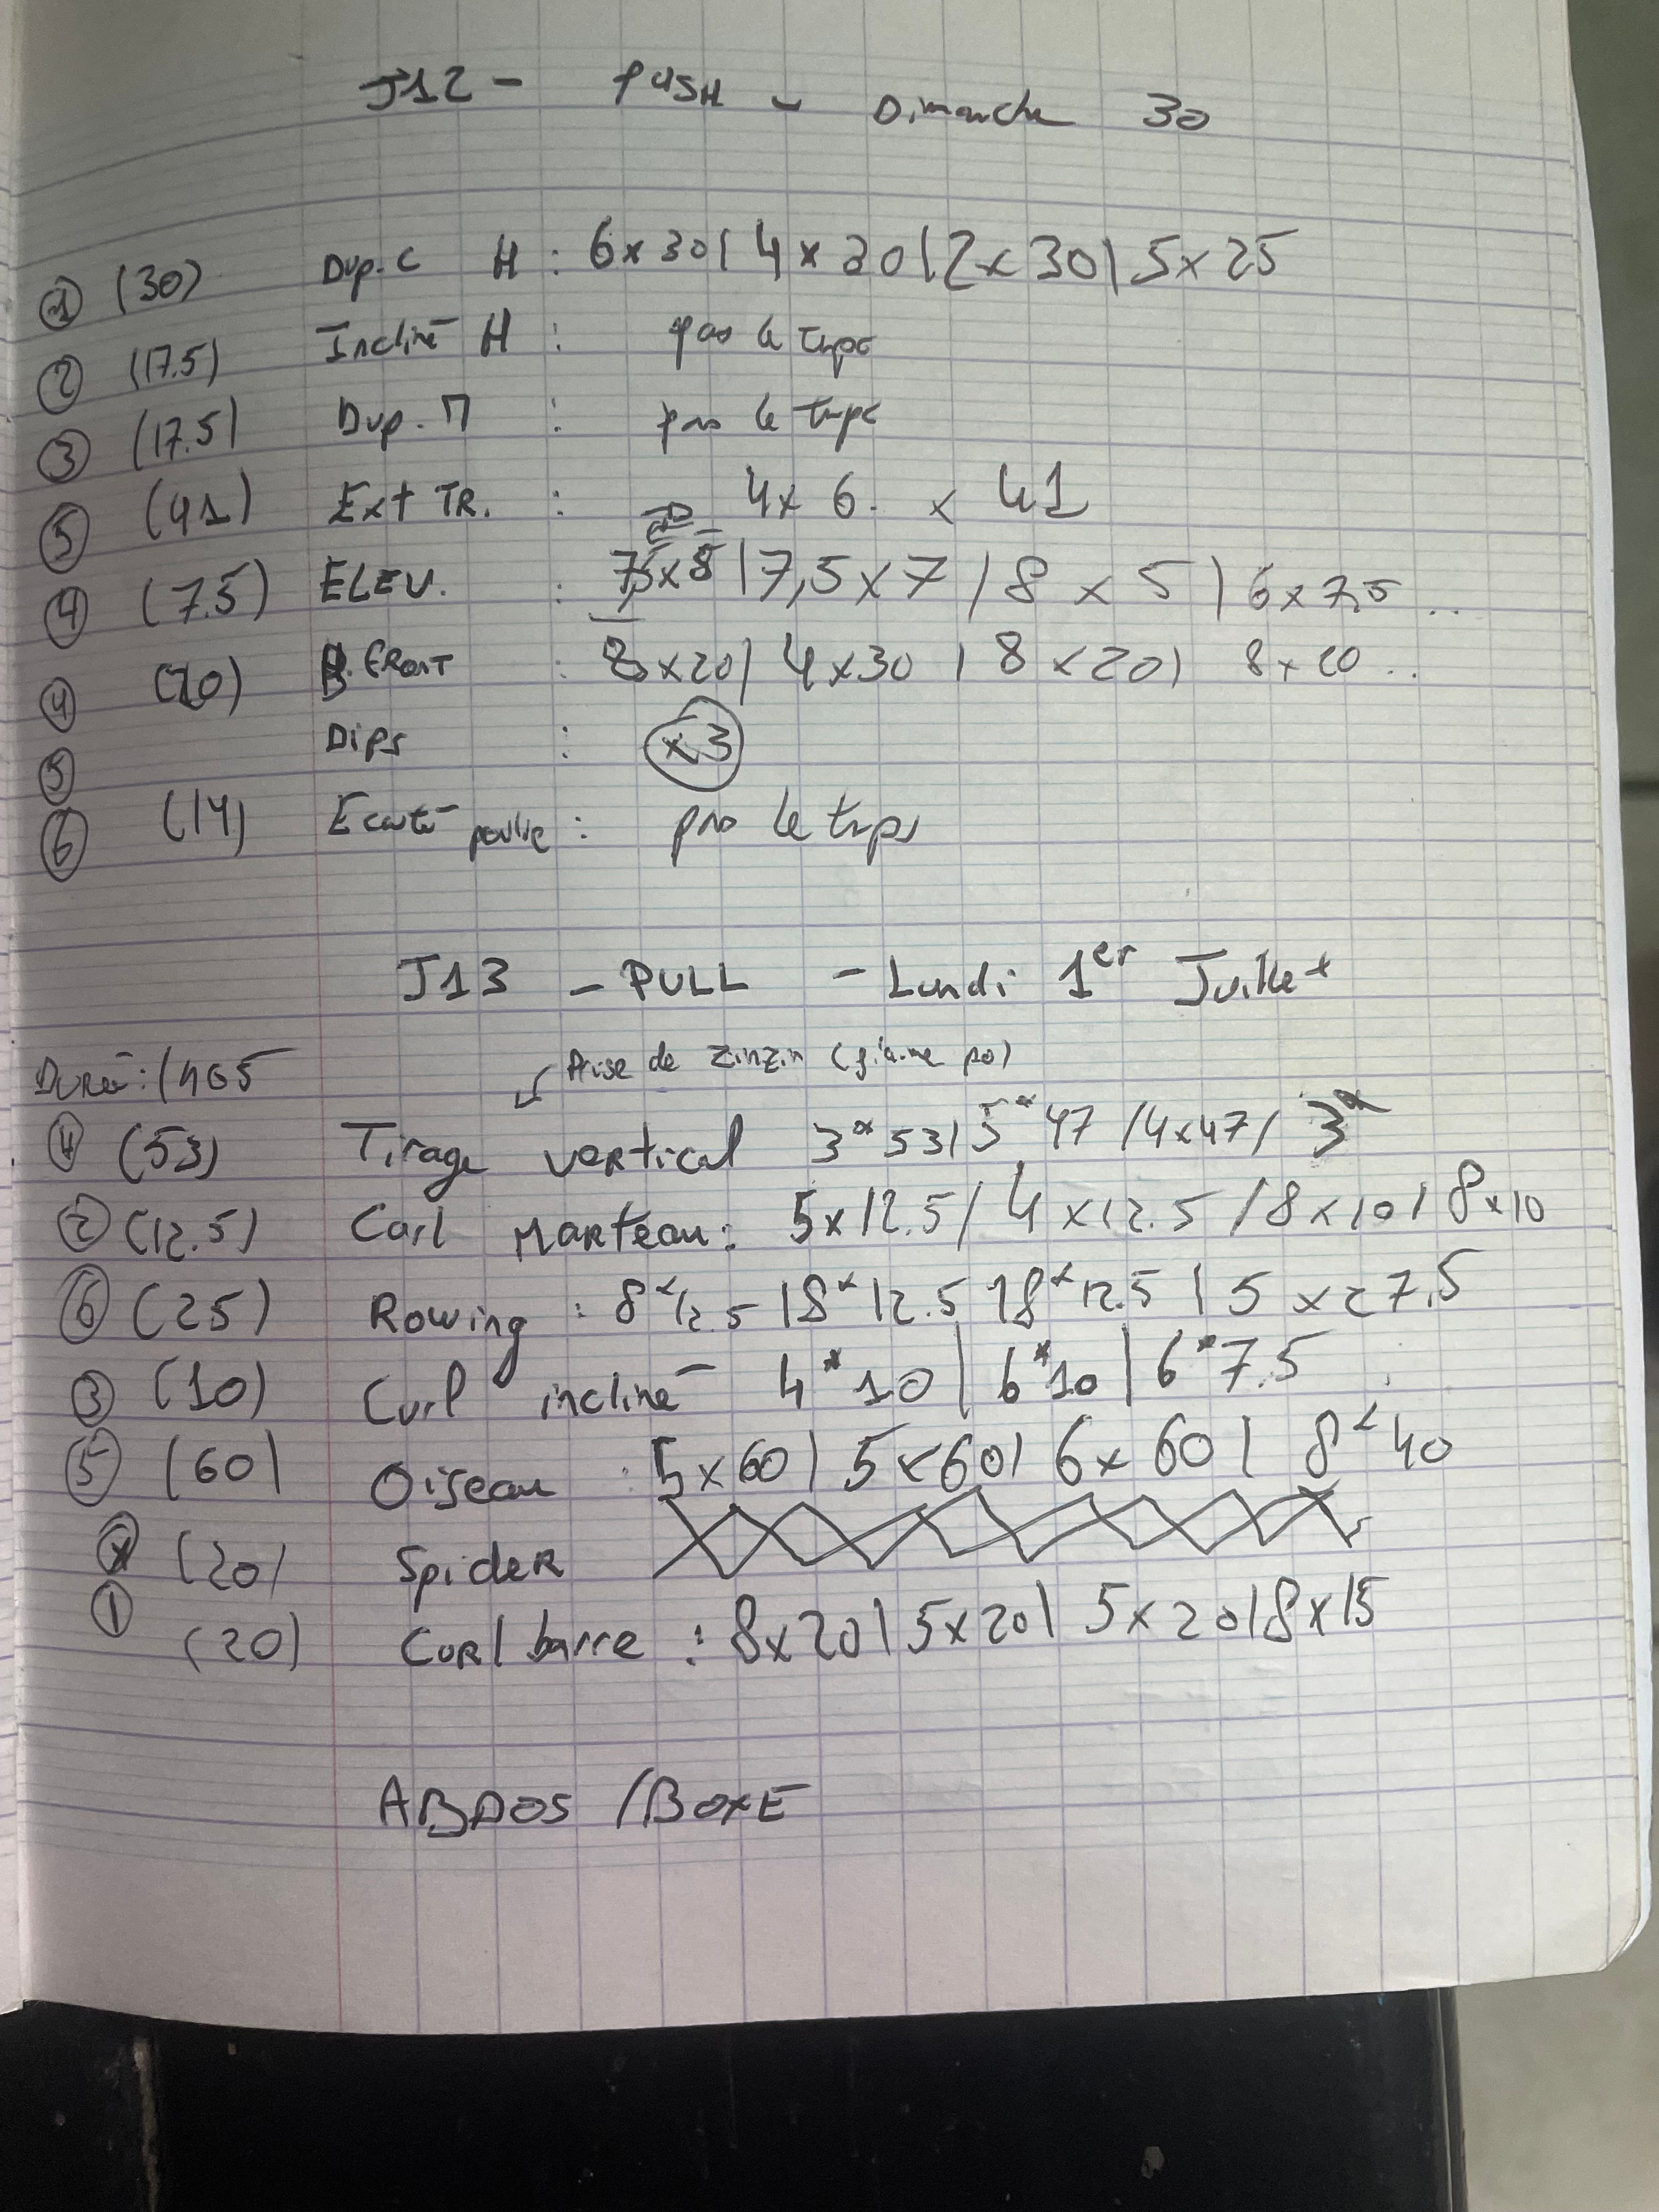 J12 - PUSH - Dimanche 30
① (30) Dvp. C H : 6x30 | 4x30 | 2x30 | 5x25
② (17.5) Incliné H : pas le temps
③ (17.5) Dvp. M : pas le temps
⑤ (41) Ext TR. : 4x6. x 41
④ (7.5) ELEV. : 7,5x8 | 7,5x7 | 8x5 | 6x7,5 ..
④ (20) B. FRONT : 8x20 | 4x30 | 8x20 | 8x20 ..
⑤ Dips : x3
⑥ (14) Ecarté poulie : pas le temps
J13 - PULL - Lundi 1er Juillet
Durée : 1h05
Prise de zinzin (j'aime po)
④ (53) Tirage vertical 3x53 | 5x47 | 4x47 | 3x
② (12.5) Curl Marteau : 5x12.5 / 4x12.5 / 8x10 | 8x10
⑥ (25) Rowing : 8x12.5 | 8x12.5 | 8x12.5 | 5x27,5
③ (10) Curl incliné 4x10 | 6x10 | 6x7.5
⑤ (60) Oiseau : 5x60 | 5x60 | 6x60 | 8x40
(20) Spider
① (20) Curl barre : 8x20 | 5x20 | 5x20 | 8x15
ABDOS / BOXE